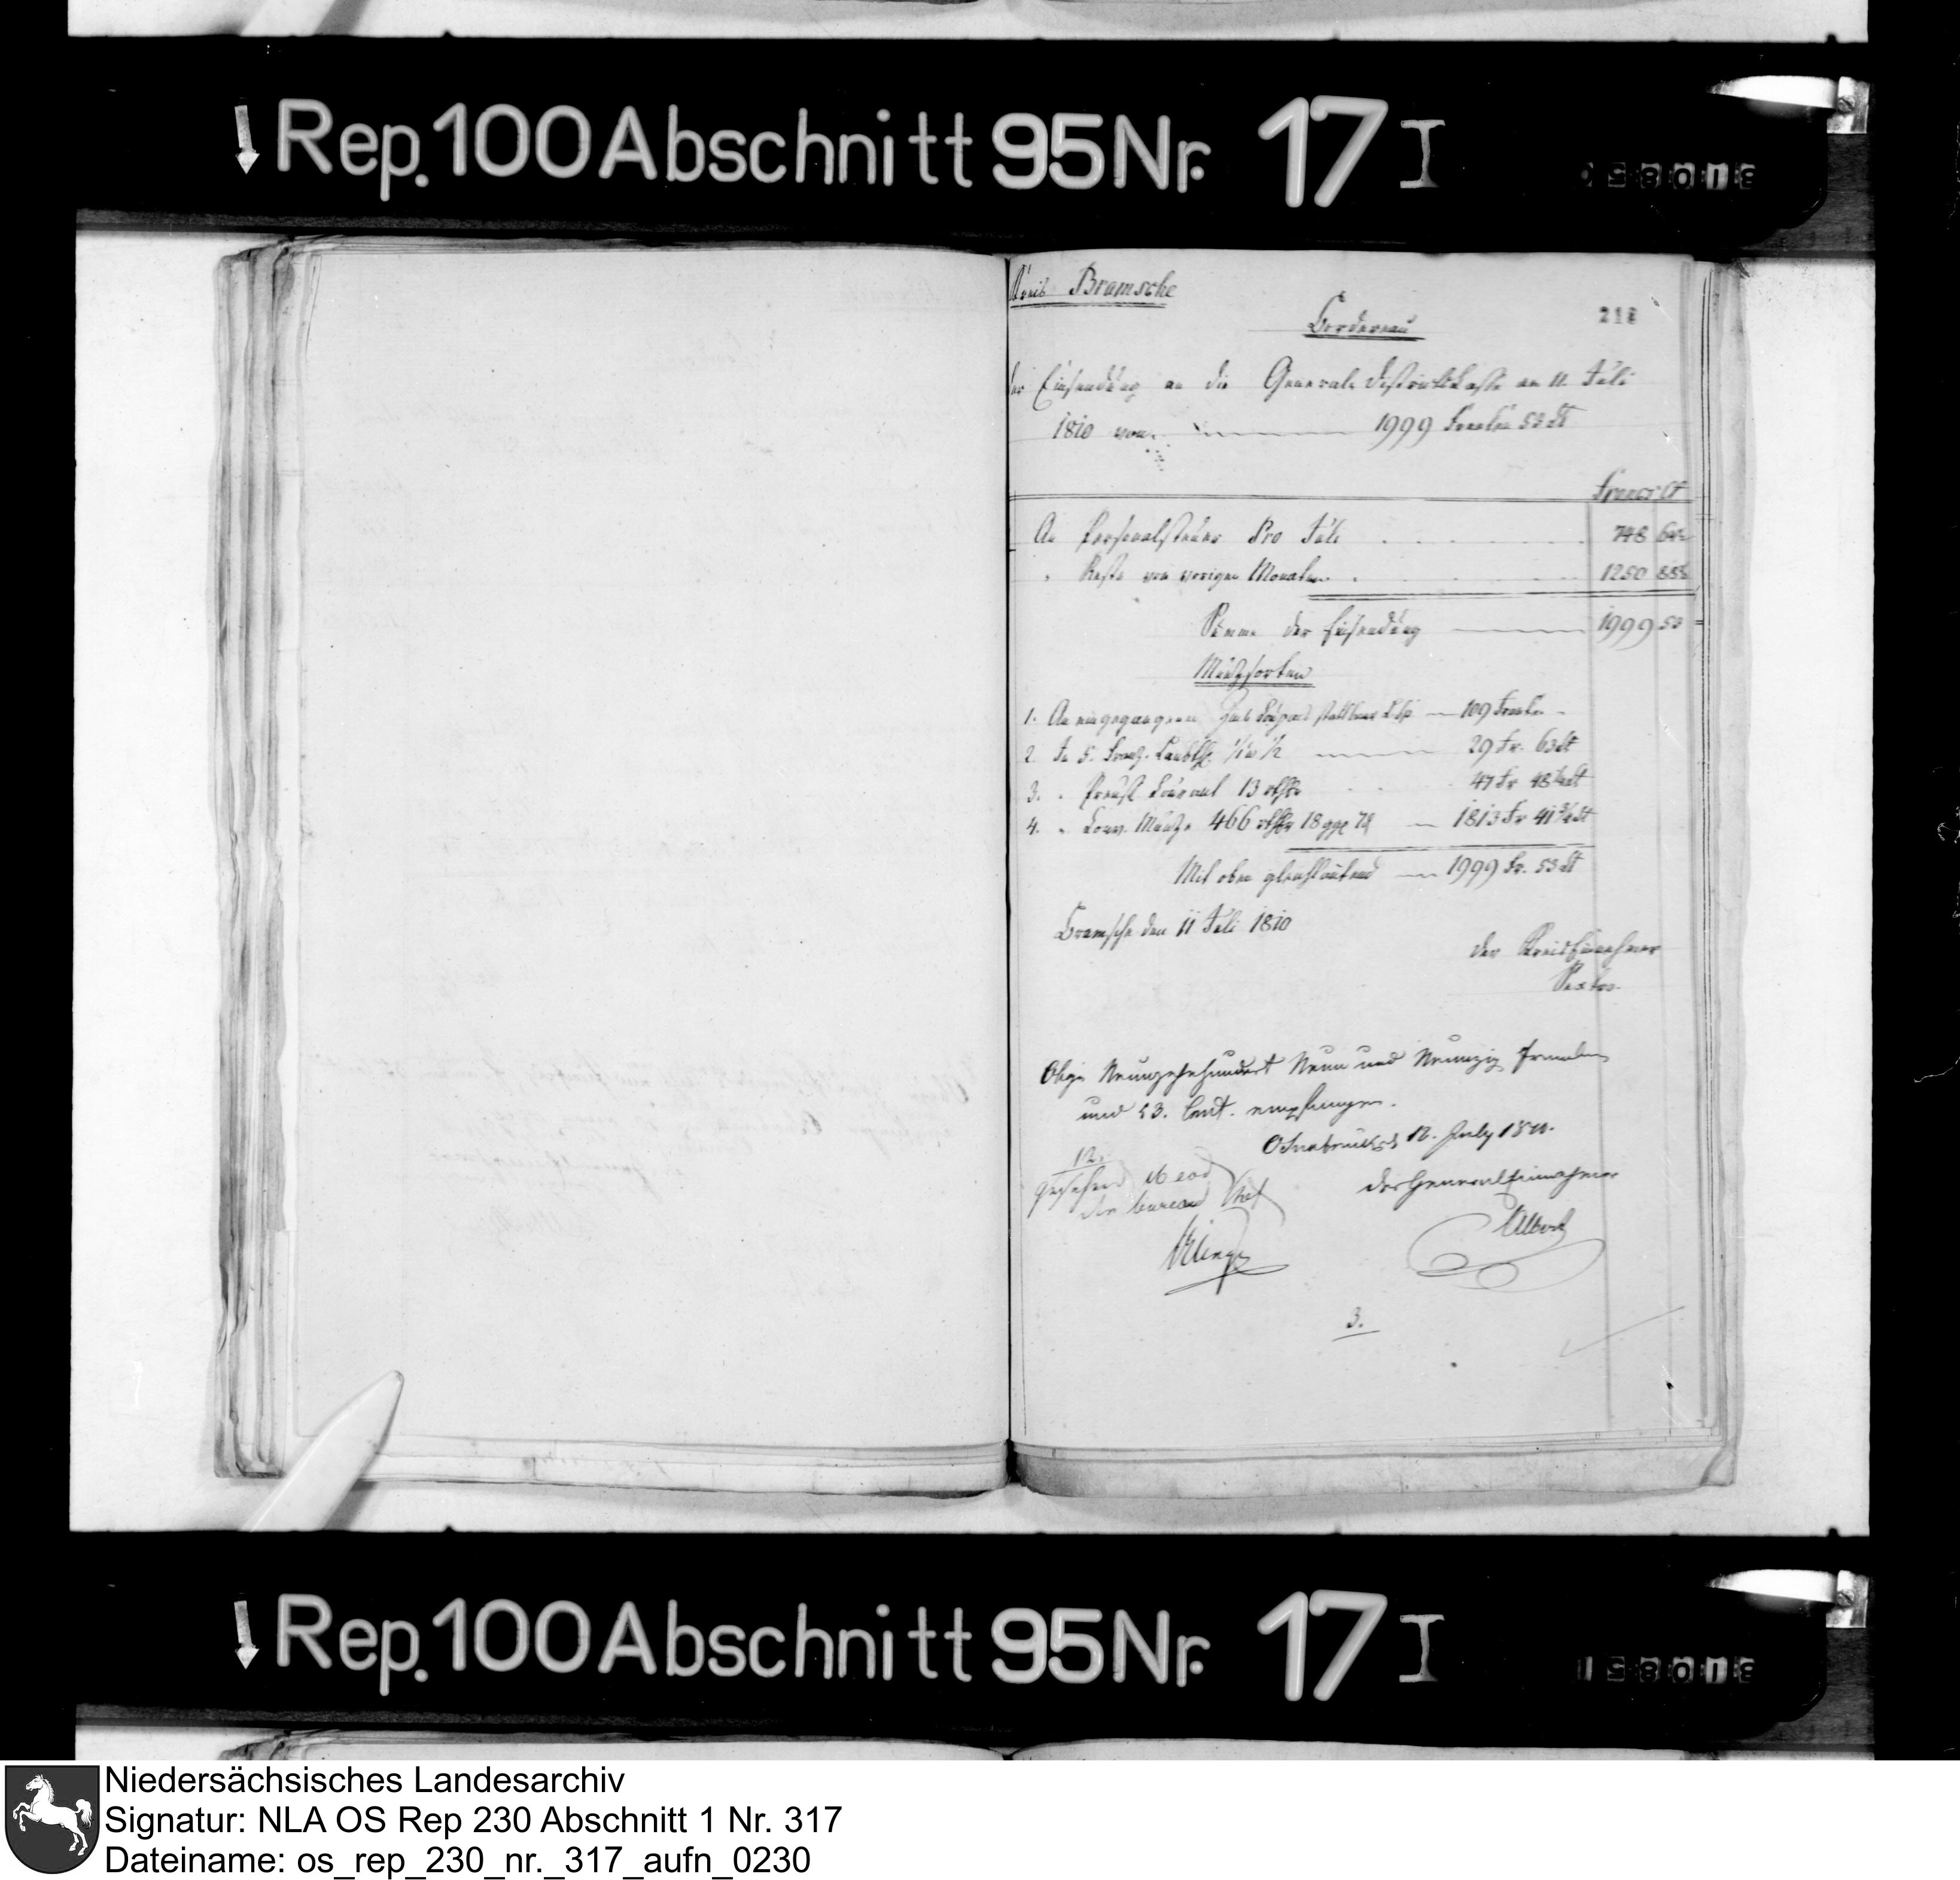 Rep. 100 Abschnitt 95 Nr. 17 I
Kreis Bramsche
218
Bordereau
der Einsendung an die Generale Districtskasse am 11. Juli
1810 von 1999 Franken 53 Ct
Francs Ct
An Personalsteuer Pro Juli 748
" Reste von vorigen Monaten 1250
Summa der Einsendung 1999 53
Münzsorten
1. An eingegangenen 109 Franken
2. In 29 Fr. 63 Ct
3. " Preuß Courant 13 rthlr 47 Fr 48 Ct
4. " Conv. Münze 466 rthlr 18 ggr 7 d 1813 Fr 41 3/4 Ct
Mit oben gleichlautend 1999 Fr. 53 Ct
Bramsche den 11 Juli 1810
Der Kreis Einnehmer
Obige Neunzehnhundert Neun und Neunzig Franken
und 53. Cent. empfangen.
Osnabrück d 12. July 1810.
Der General Einnehmer
12.
gesehen eod
der bureau Chef
3.
Rep. 100 Abschnitt 95 Nr. 17 I
Niedersächsisches Landesarchiv
Signatur: NLA OS Rep 230 Abschnitt 1 Nr. 317
Dateiname: os_rep_230_nr._317_aufn_0230